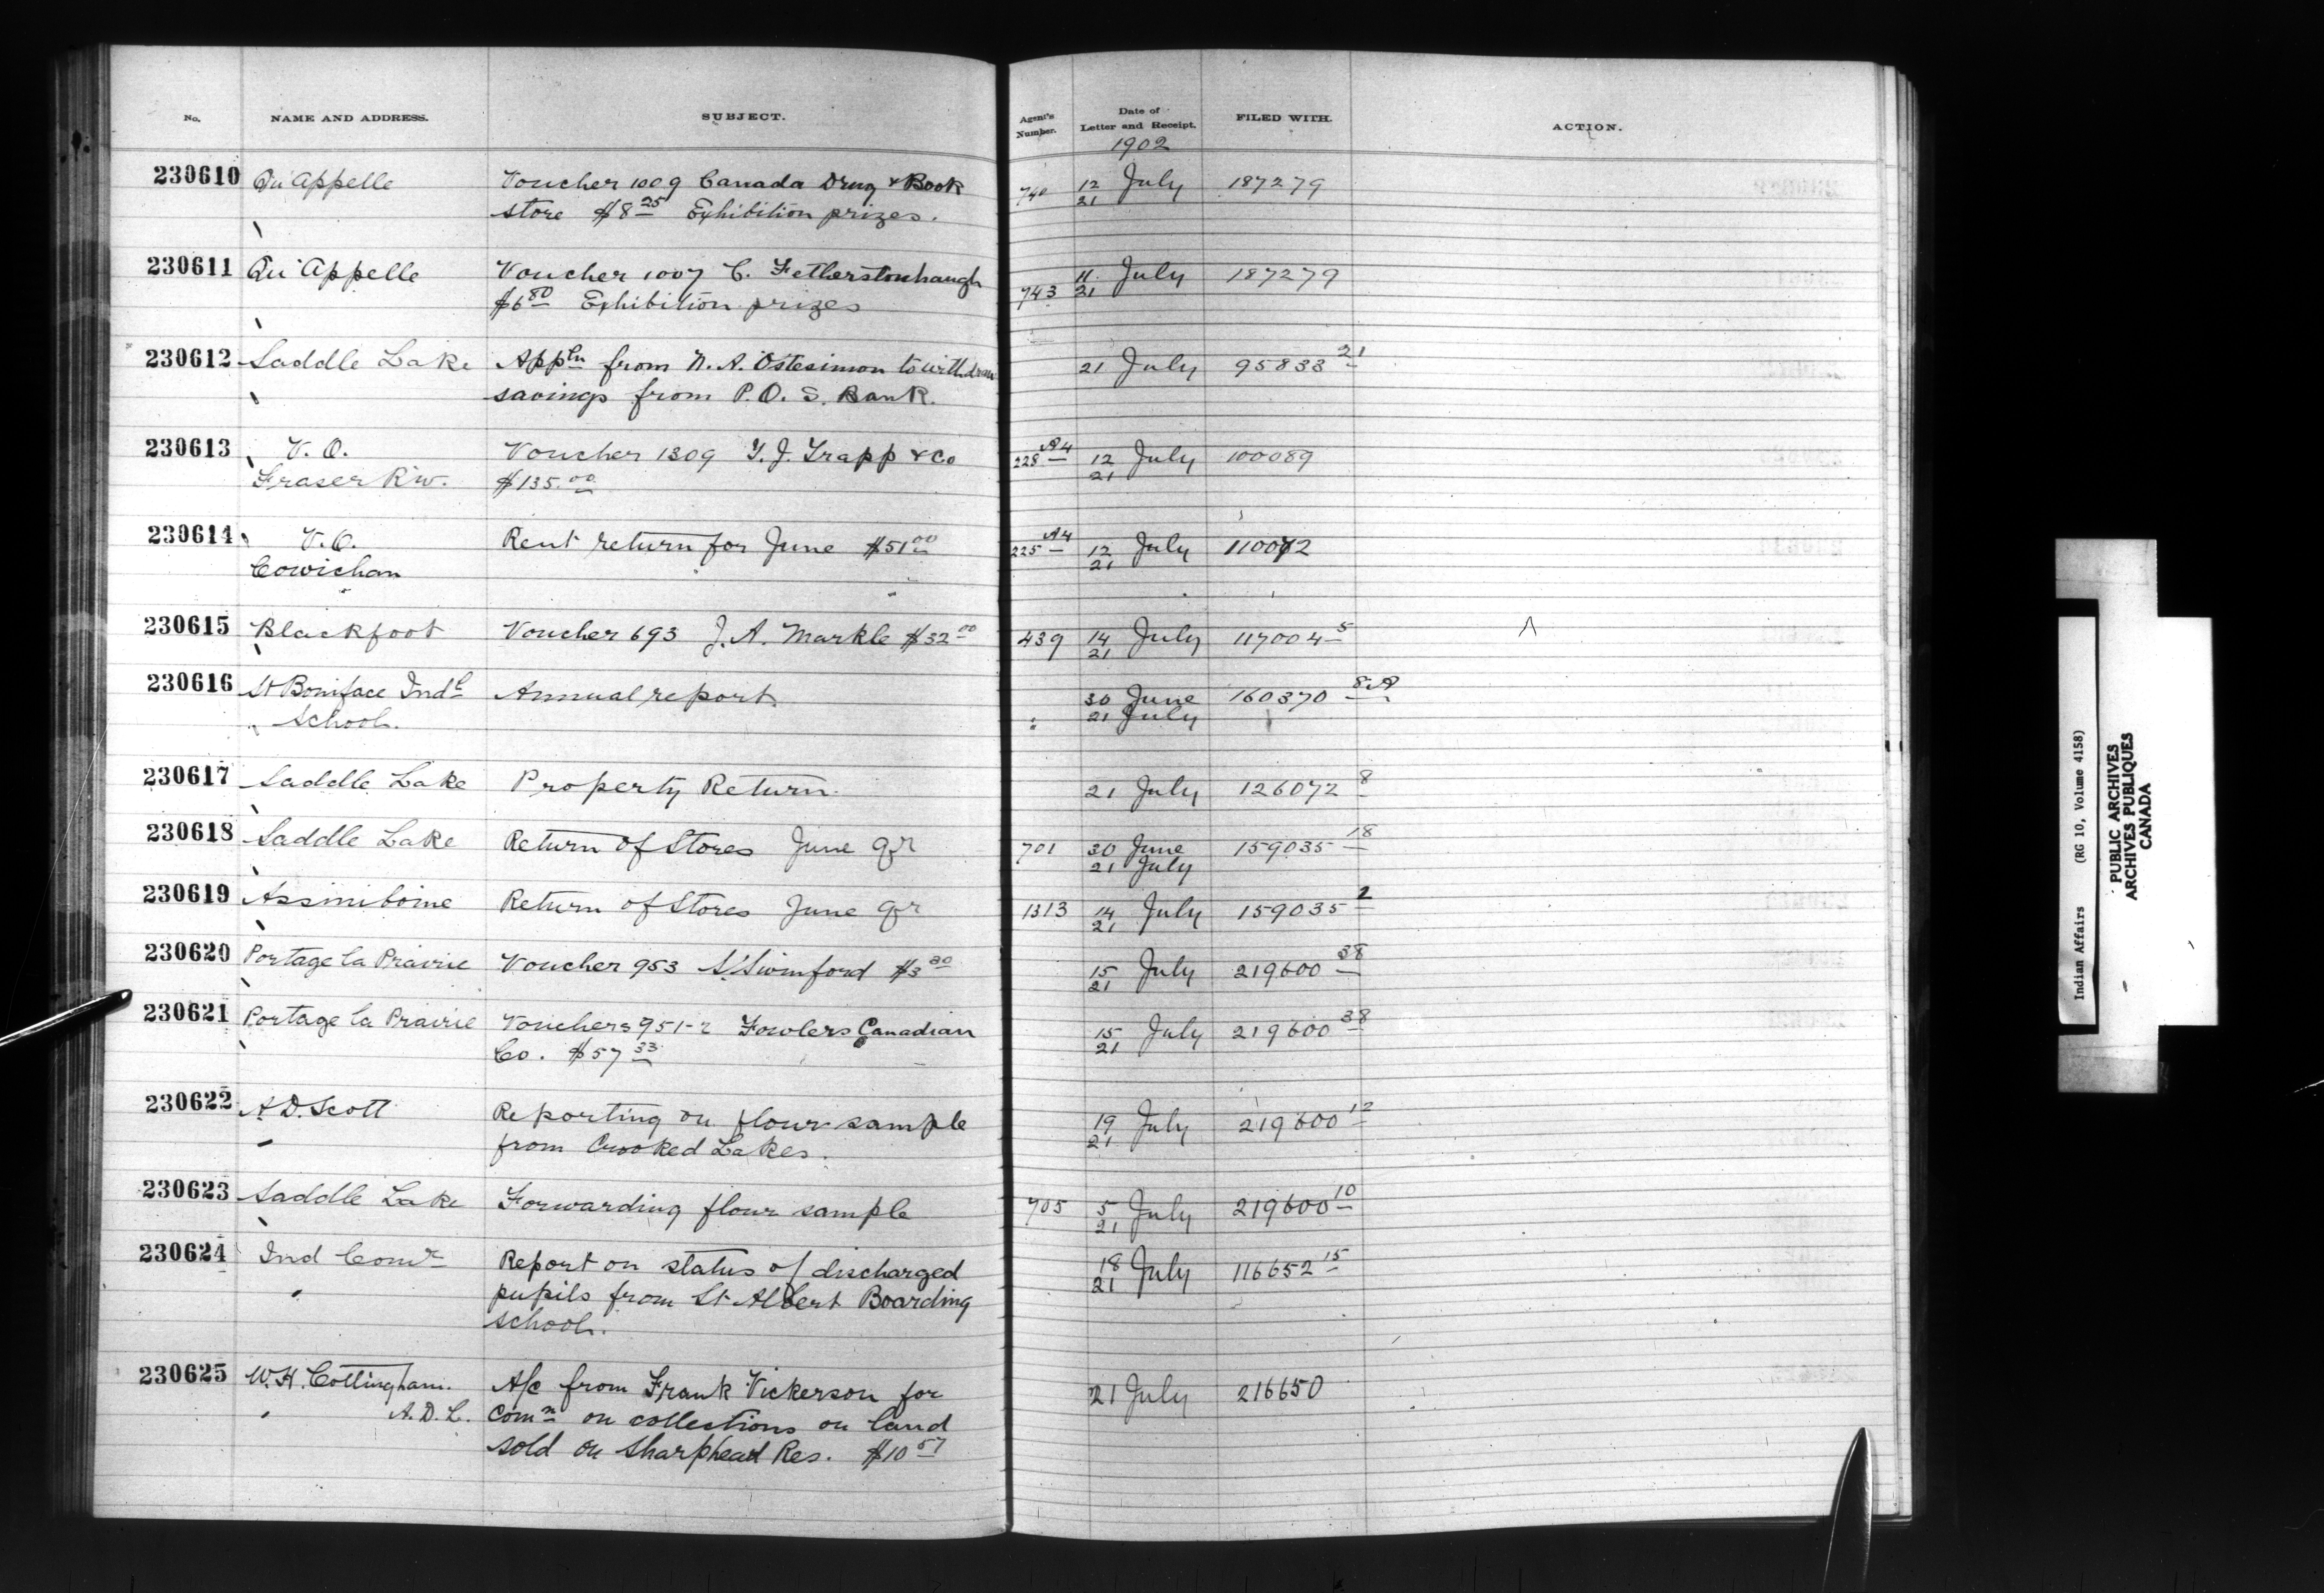 No. NAME AND ADDRESS. SUBJECT. Agent's Number. Date of Letter and Receipt. FILED WITH. ACTION.
1902
230610 Qu'Appelle Voucher 1009 Canada Drug & Book 740 12 July 187279
store $8 25 Exhibition prizes. 21
230611 Qu'Appelle Voucher 1007 C. Fetherstonhaugh 743 11 July 187279
$6 80 Exhibition prizes 21
230612 Saddle Lake Appln from N. A. Ostesimon to withdraw 21 July 95833 21
savings from P.O. S. Bank.
230613 V. O. Voucher 1309 T. J. Trapp & Co 228 A4 12 July 100089
Fraser Riv. $135.00 21
230614 V. O. Rent return for June $51 00 225 A4 12 July 110072
Cowichan 21
230615 Blackfoot Voucher 693 J. A. Markle $32 00 439 14 July 117004 5
21
230616 St Boniface Indl Annual report. 30 June 160370 8A
School. 21 July
230617 Saddle Lake Property Return. 21 July 126072 8
230618 Saddle Lake Return of Stores June Qr 701 30 June 159035 18
21 July
230619 Assiniboine Return of Stores June Qr 1313 14 July 159035 2
21
230620 Portage la Prairie Voucher 953 S. Swinford $3 80 15 July 219600 38
21
230621 Portage la Prairie Vouchers 951-2 Fowlers Canadian 15 July 219600 38
Co. $57 33 21
230622 A D. Scott Reporting on flour sample 19 July 219600 12
from Crooked Lakes. 21
230623 Saddle Lake Forwarding flour sample 705 5 July 219600 10
21
230624 Ind Comr Report on status of discharged 18 July 116652 15
pupils from St Albert Boarding 21
school.
230625 W. H. Cottingham. A/c from Frank Vickerson for 21 July 216650
A. D. L. Comn on collections on land
sold on Sharphead Res. $10 57
Indian Affairs (RG 10, Volume 4158)
PUBLIC ARCHIVES
ARCHIVES PUBLIQUES
CANADA